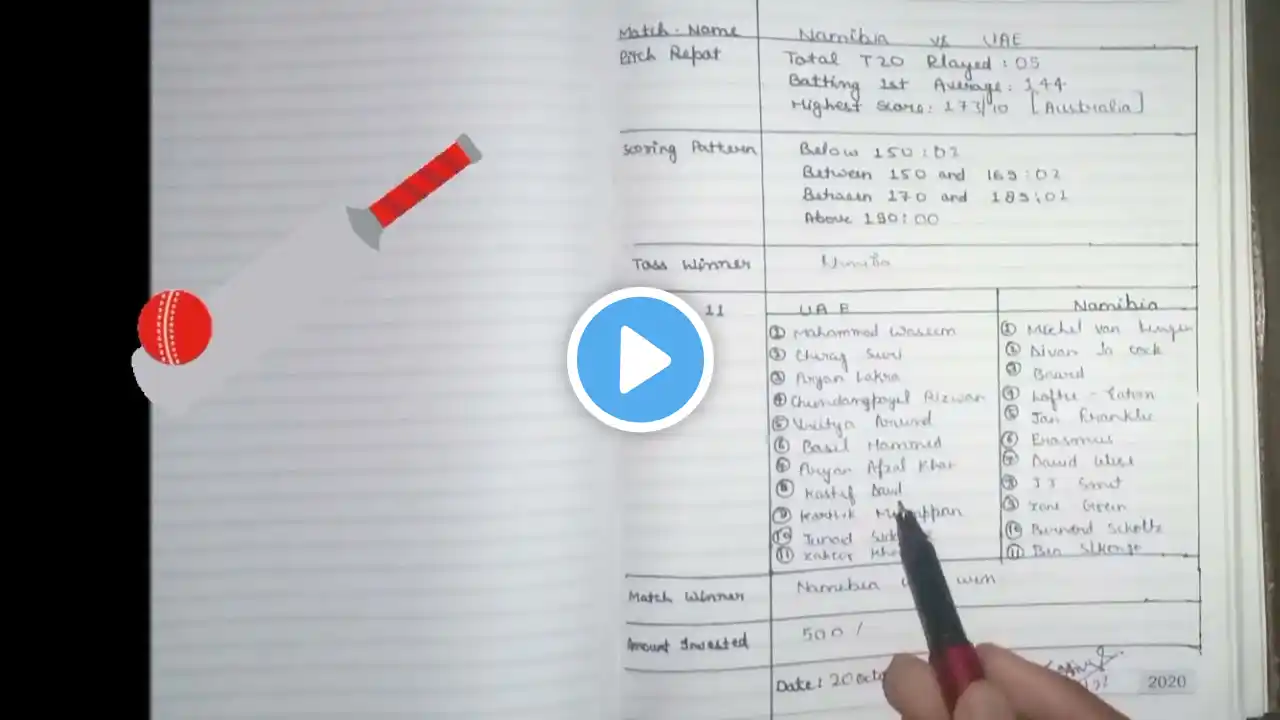 Match-Name Namibia vs UAE
Pitch Repot Total T20 Played : 05
Batting 1st Average : 144
Highest Score : 173/10 [Australia]
Scoring Pattern Below 150 : 02
Between 150 and 169 : 02
Between 170 and 189 : 01
Above 190 : 00
Toss Winner
11 UAE Namibia
① Mohammed Waseem ① Michel van
② Chirag Suri ② Divan la cock
③ Aryan Lakra ③ Baard
④ Chundangpoyil Rizwan ④ Loftie - Eaton
⑤ Vritya Aravind ⑤ Jan Frankle
⑥ Basil Hammed ⑥ Erasmus
⑦ Aryan Afzal Khan ⑦ David Wiese
⑧ Kashif Daud ⑧ JJ Smit
⑨ Karthik ⑨ Zane Green
⑩ Junad ⑩ Bernard Scholtz
⑪ Zahoor ⑪ Ben
Match Winner Namibia win
Amount Invested 500/
Date : 20
2020